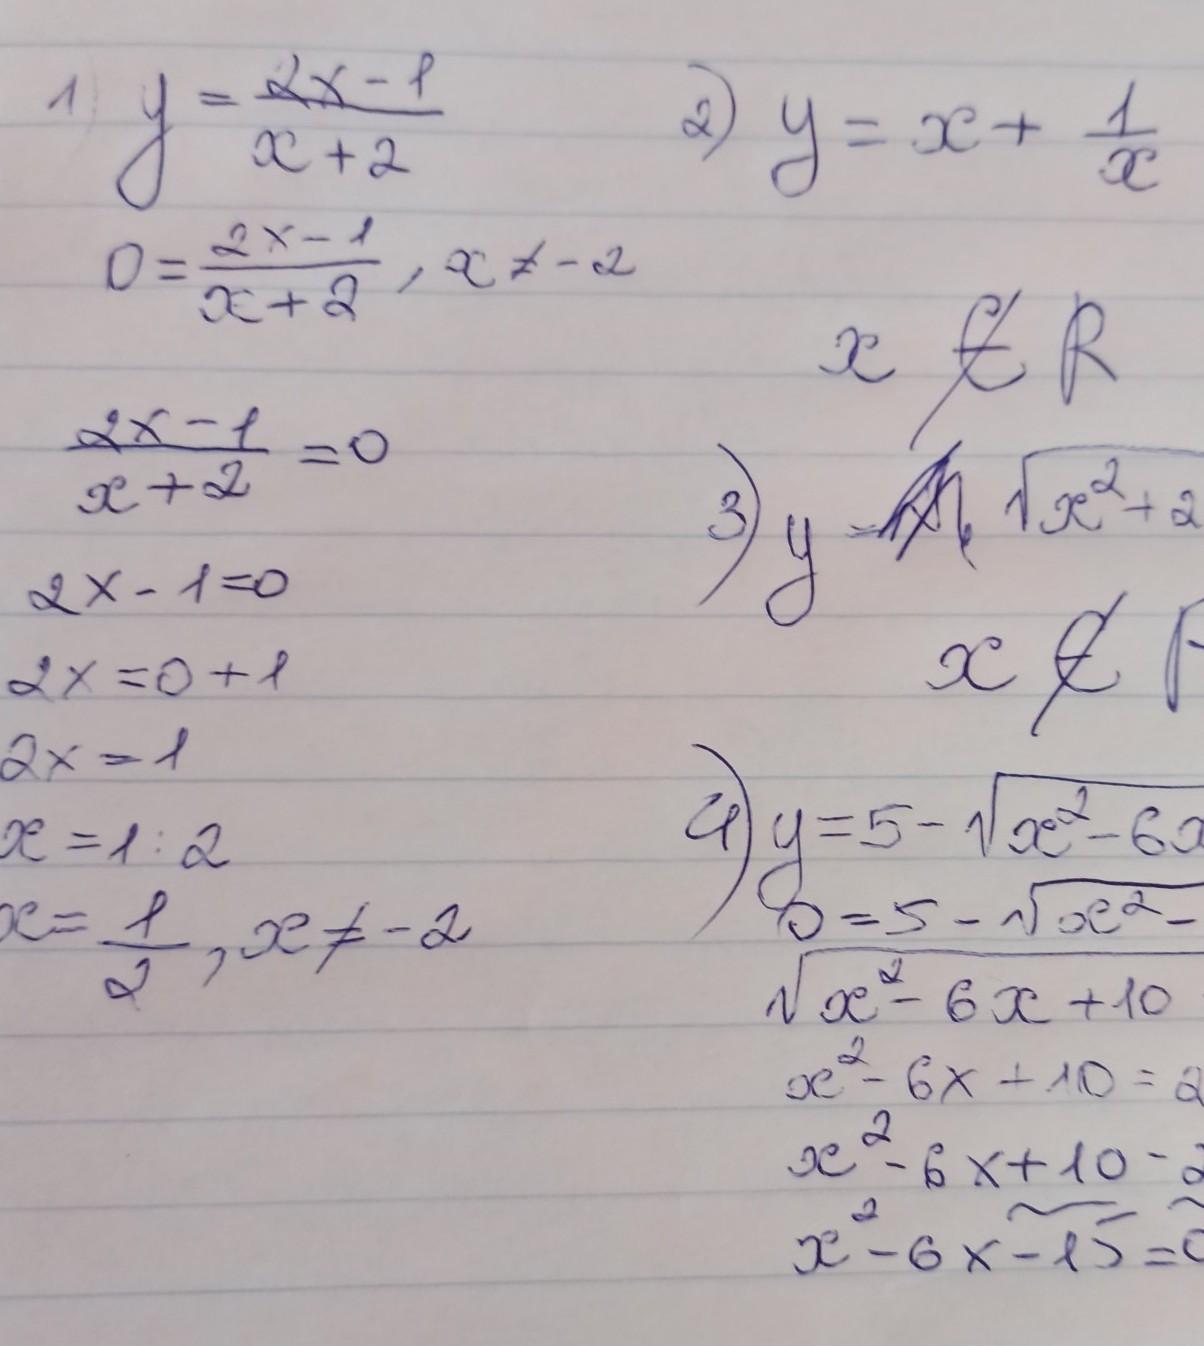 1) y = (2x-1)/(x+2)
0 = (2x-1)/(x+2), x ≠ -2
(2x-1)/(x+2) = 0
2x - 1 = 0
2x = 0 + 1
2x = 1
x = 1 : 2
x = 1/2, x ≠ -2
2) y = x + 1/x
x ∉ R
3) y = √(x² + 2
x ∉
4) y = 5 - √(x² - 6x
0 = 5 - √(x² -
√(x² - 6x + 10
x² - 6x + 10 = 2
x² - 6x + 10 - 2
x² - 6x - 15 = 0